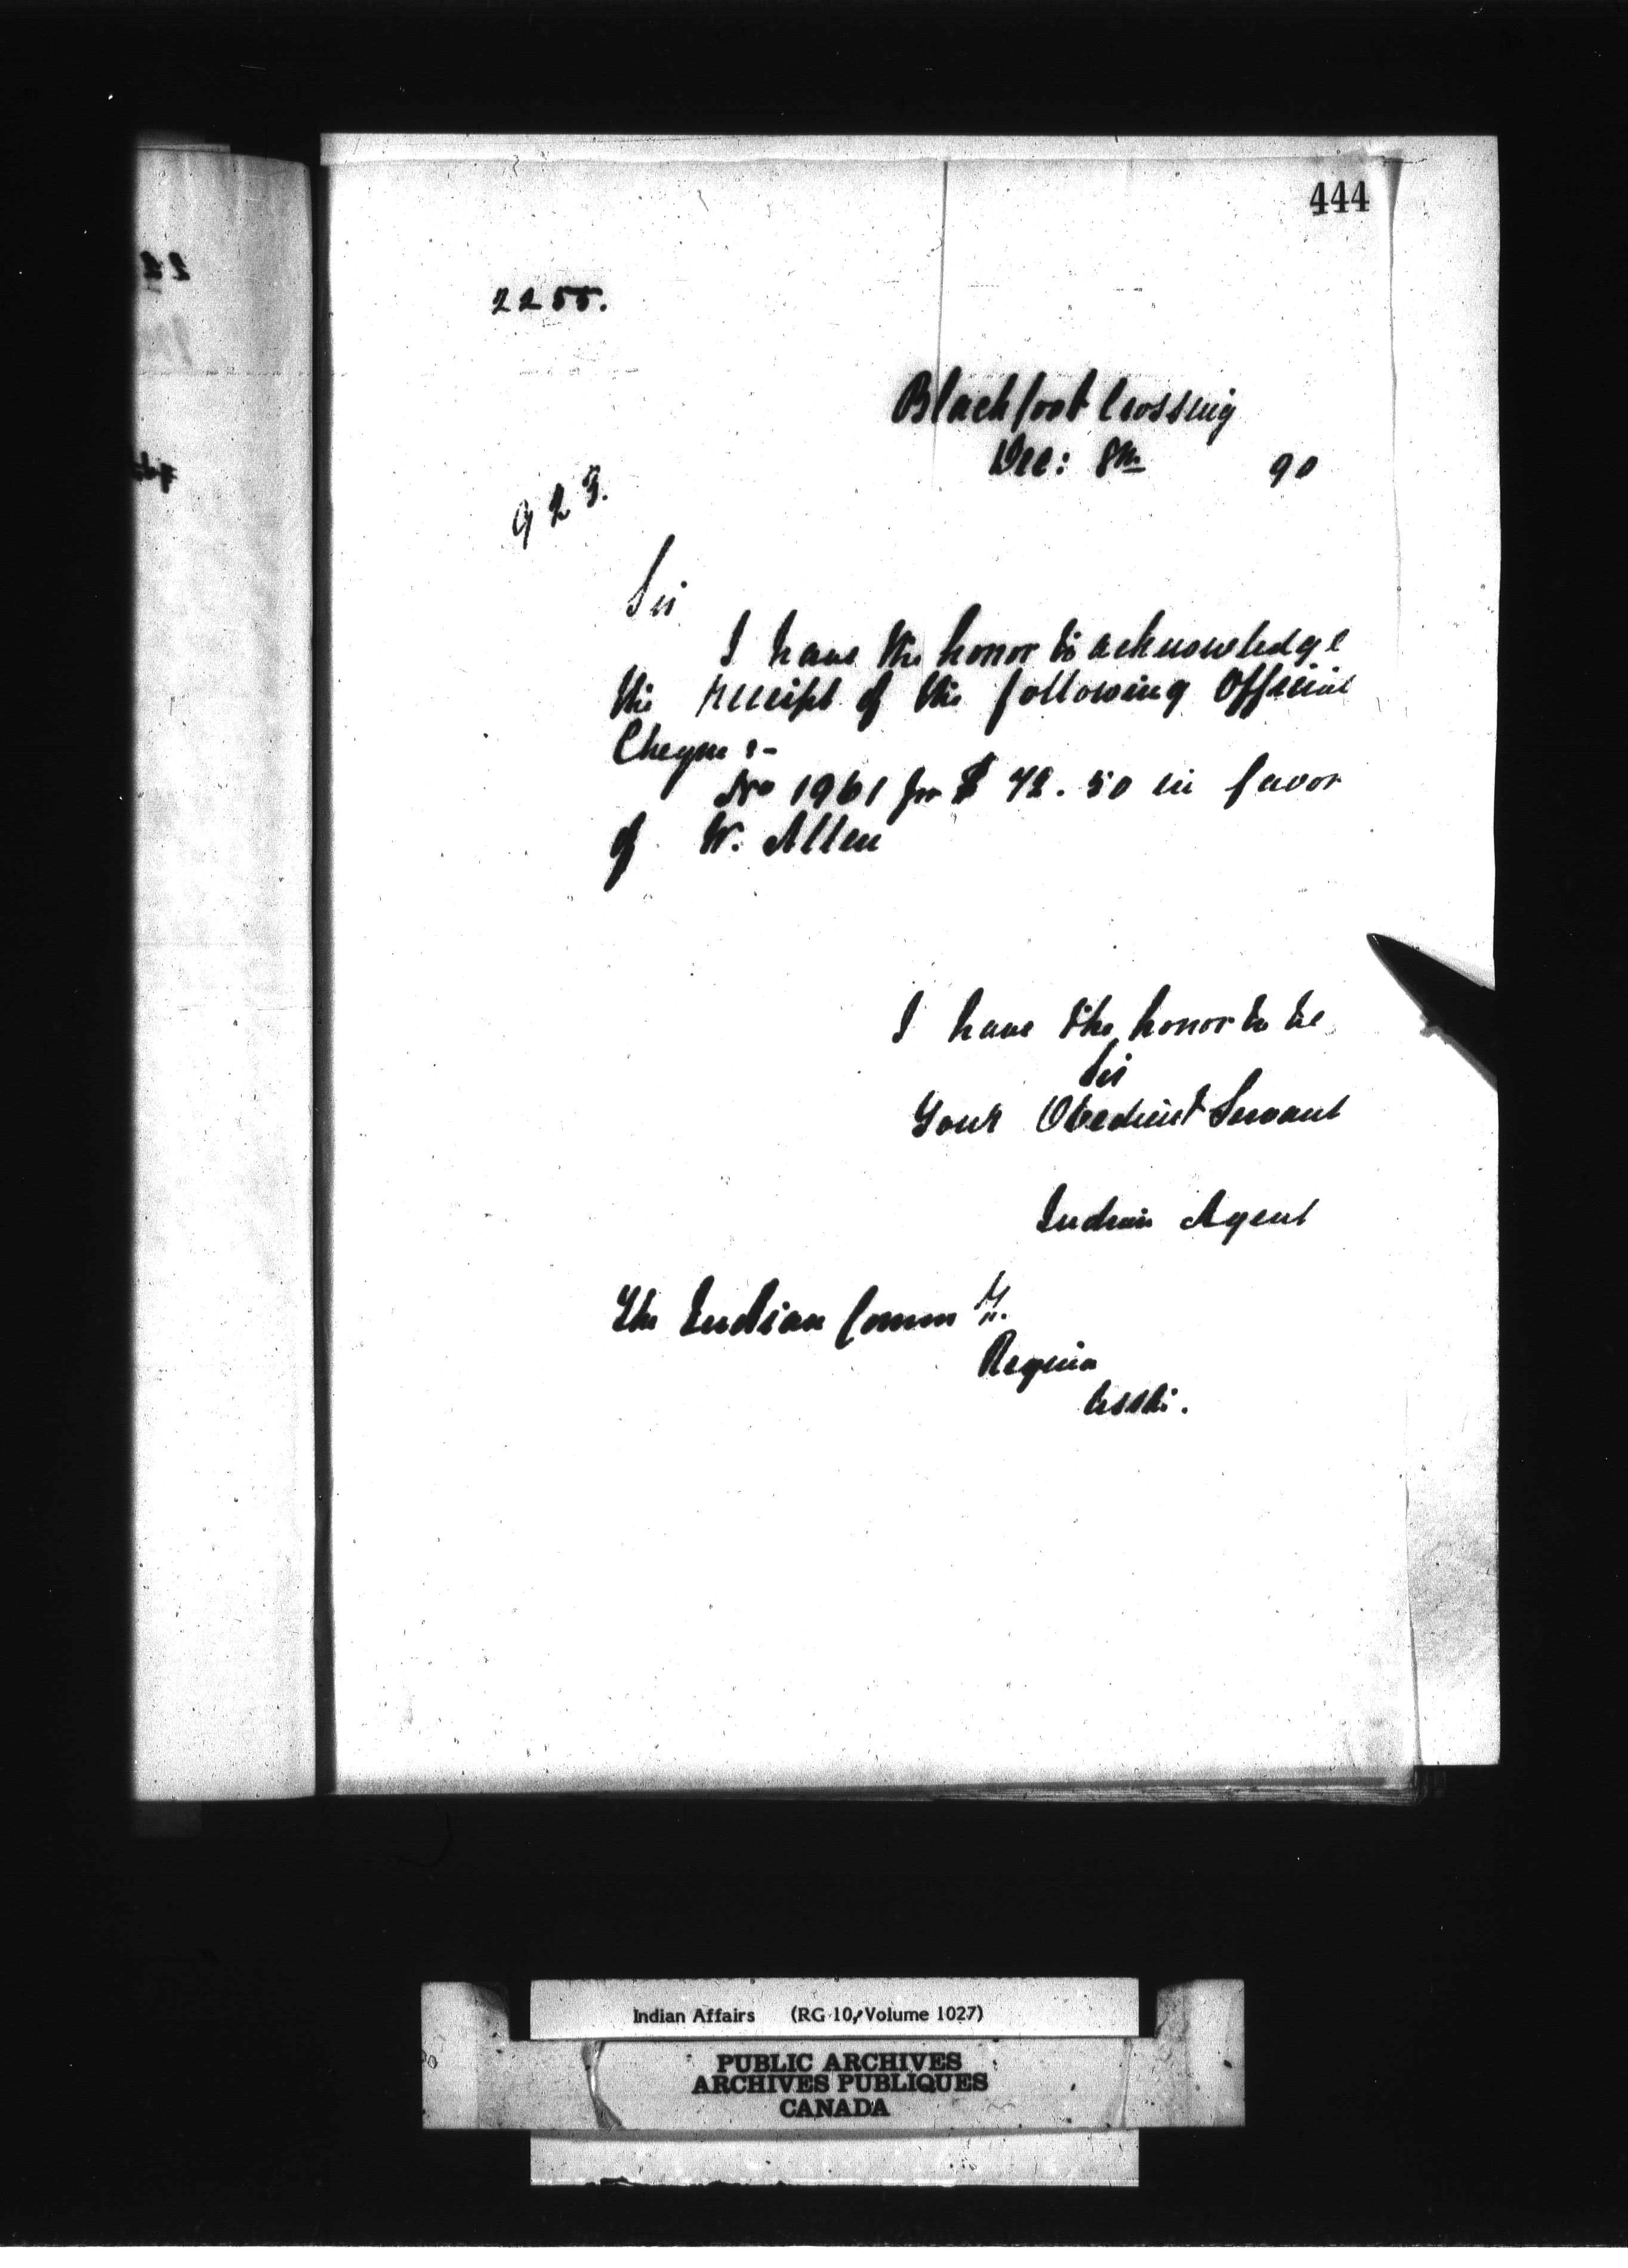 444
2255.
Blackfoot Crossing
Dec: 8th 90
923.
Sir
I have the honor to acknowledge
the receipt of the following Official
Cheque :-
No 1961 for $ 42.50 in favor
of W. Allen
I have the honor to be
Sir
Your Obedient Servant
Indian Agent
The Indian Commr.
Regina
Assa.
Indian Affairs (RG 10, Volume 1027)
PUBLIC ARCHIVES
ARCHIVES PUBLIQUES
CANADA